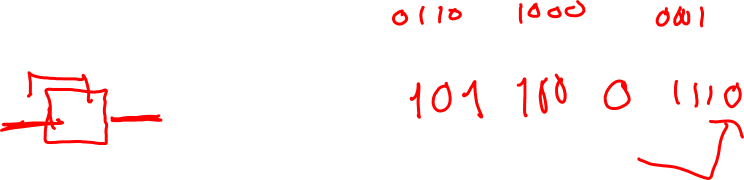 0110 1000 0001
101 100 0 1110